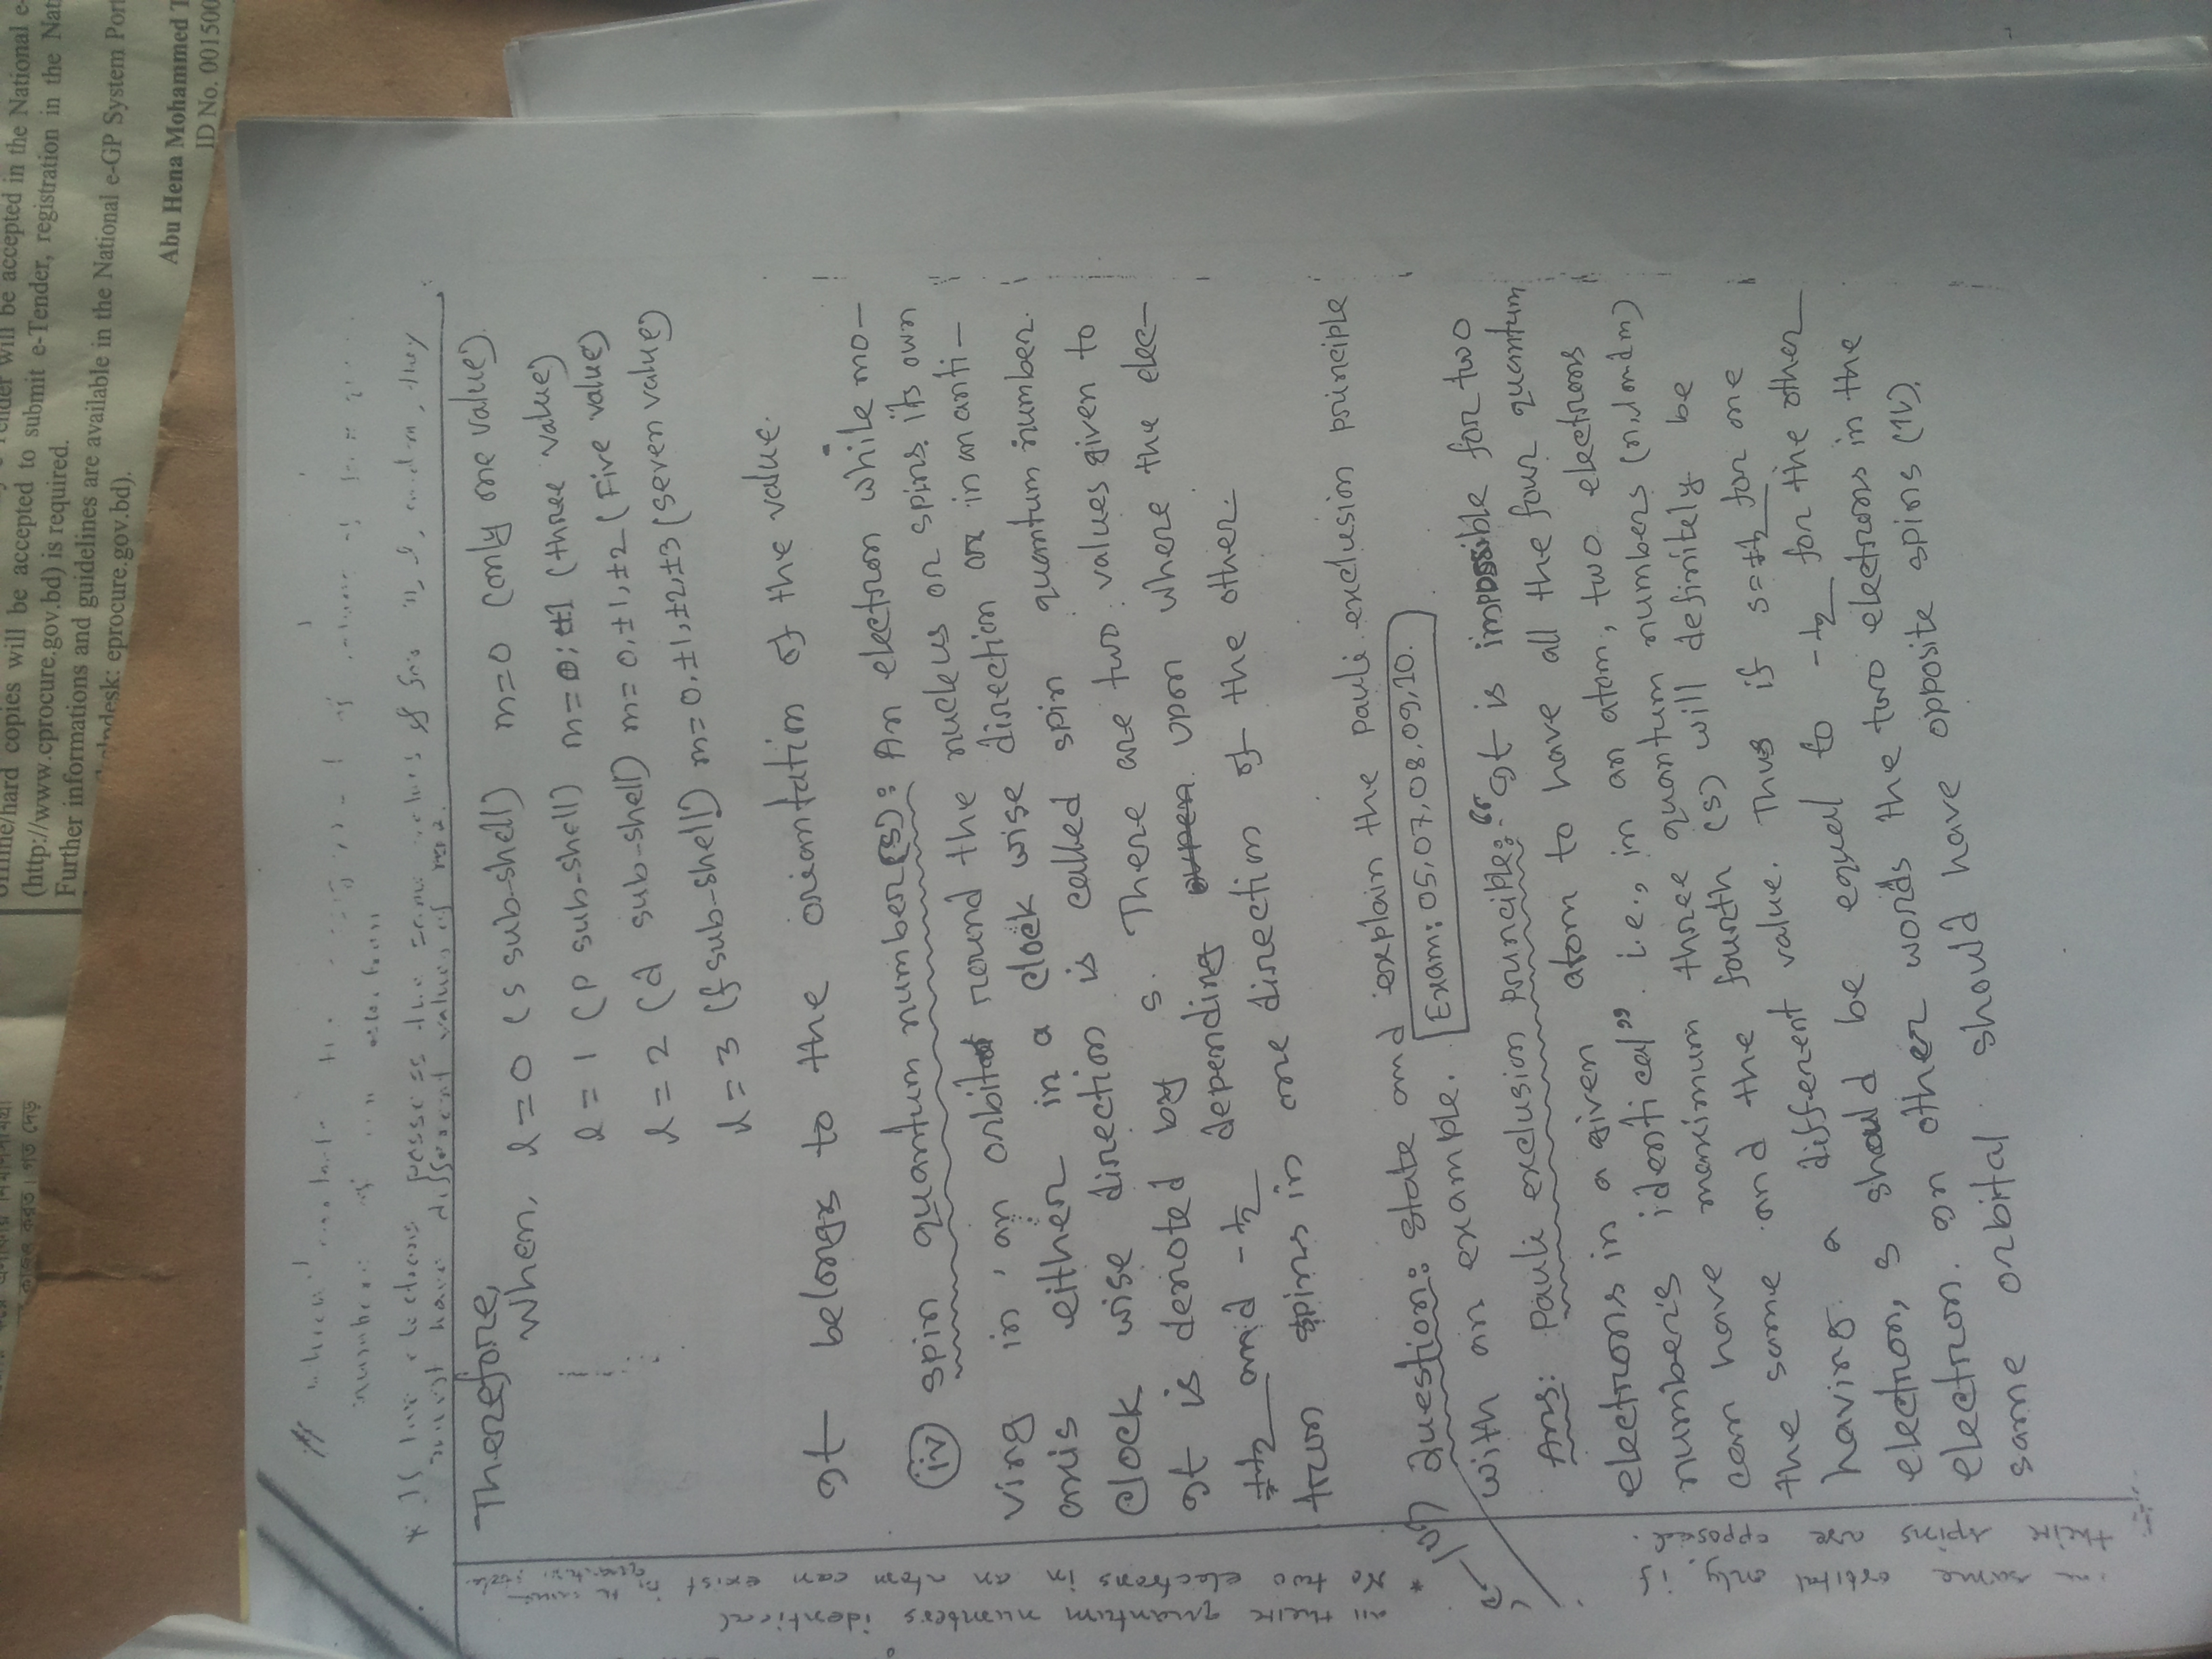 কাজল করত। গত দেড়
offline/hard copies will be accepted to submit e-Tender, registration in the Nat
(http://www.cprocure.gov.bd) is required.
Further informations and guidelines are available in the National e-GP System Port
desk: eprocure.gov.bd).
Abu Hena Mohammed T
ID No. 001500
* If two electrons possess the same values of n, l, and m, they
must have different values of
Therefore,
When, l=0 (s sub-shell) m=0 (only one value)
l=1 (p sub-shell) m=0; ±1 (three value)
l=2 (d sub-shell) m=0,±1,±2 (Five value)
l=3 (f sub-shell) m=0,±1,±2,±3 (seven value)
It belongs to the oriantation of the value.
(iv) spin quantum number(s): An electron while mo-
ving in an orbit round the nucleus or spins its own
axis either in a clock wise direction or in an anti-
clock wise direction is called spin quantum number.
It is denoted by s. There are two values given to
+½ and -½ depending upon where the elec-
tron spins in one direction of the other.
Question: State and explain the pauli exclusion principle
with an example. Exam: 05,07,08,09,10.
Ans: Pauli exclusion principle: "It is impossible for two
electrons in a given atom to have all the four quantum
number's identical". i.e., in an atom, two electrons
can have maximum three quantum numbers (n,l and m)
the same and the fourth (s) will definitely be
having a different value. Thus if s=+½ for one
electron, s should be equal to -½ for the other
electron. In other words the two electrons in the
same orbital should have opposite spins (↑↓).
all their quantum numbers identical
* No two electrons in an atom can exist in the same
quantum state.
same orbital only, if
their spins are opposed.